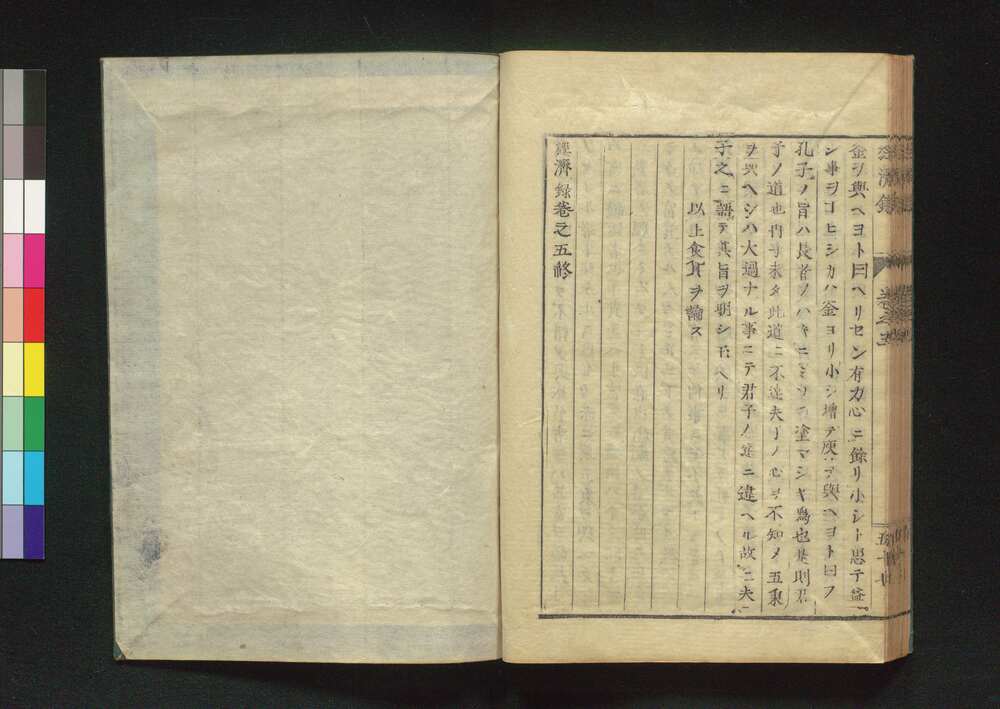 金ヲ與ヘヨト曰ヘリセン有カ心ニ餘リ小シト思テ益
ン事ヲコヒシカハ釜ヨリ小シ増テ庾ヲ與ヘヨト曰フ
孔子ノ旨ハ長者ノハカ塗マシキ爲也是則君
子ノ道也冉子未タ此道ニ不達夫子ノ心ヲ不知メ五秉
ヲ與ヘシハ大過ナル事ニテ君子ノ道ニ違ヘル故ニ夫
子之ニ語テ其旨ヲ明シ玉ヘリ
以上食貨ヲ論ス
經濟録巻之五終
經濟録
巻之五
五十